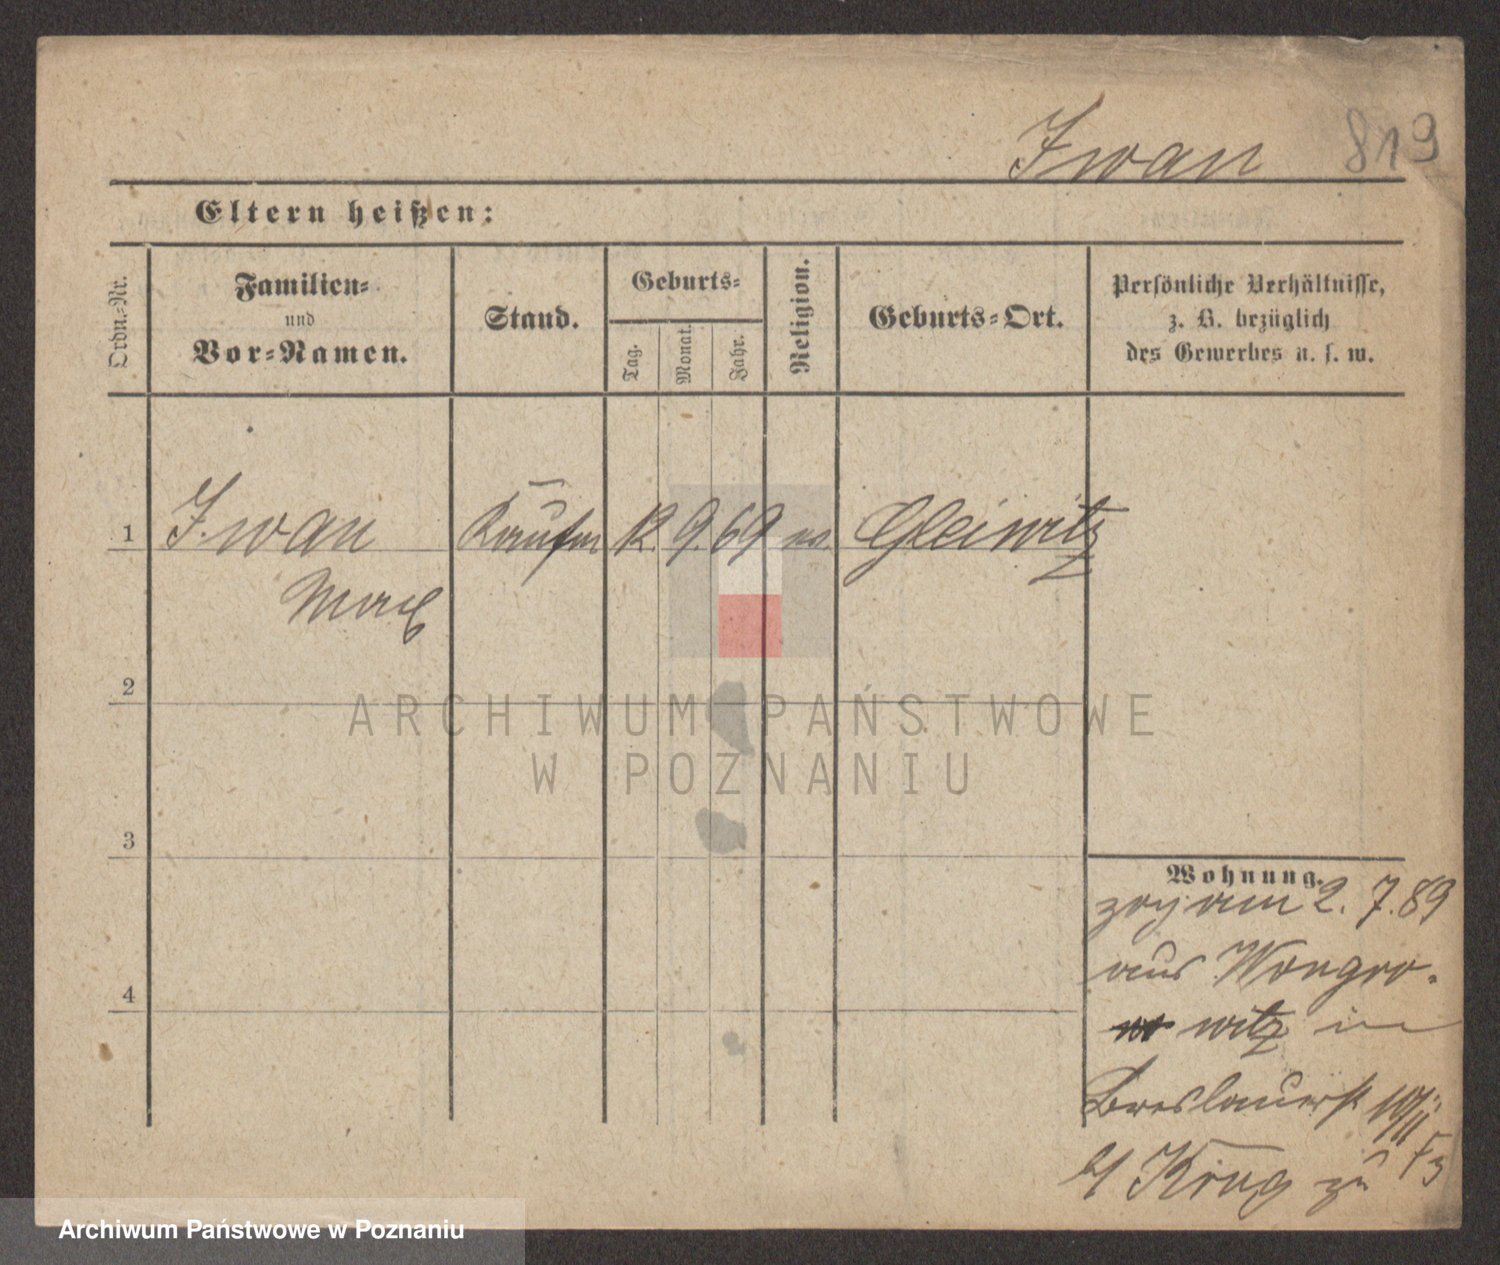 Iwan 819
Eltern heißen:
Ordn.-Nr.
Familien-
und
Vor-Namen.
Stand.
Geburts-
Tag.
Monat.
Jahr.
Religion.
Geburts-Ort.
Persönliche Verhältnisse,
z. B. bezüglich
des Gewerbes u. s. w.
1 Iwan Kaufm 12. 9. 69 Gleiwitz
Max
2
ARCHIWUM PAŃSTWOWE
W POZNANIU
3
Wohnung.
zog am 2. 7. 89
aus Wongro-
4
witz in
Breslauerst
b/ Krug zu
Archiwum Państwowe w Poznaniu